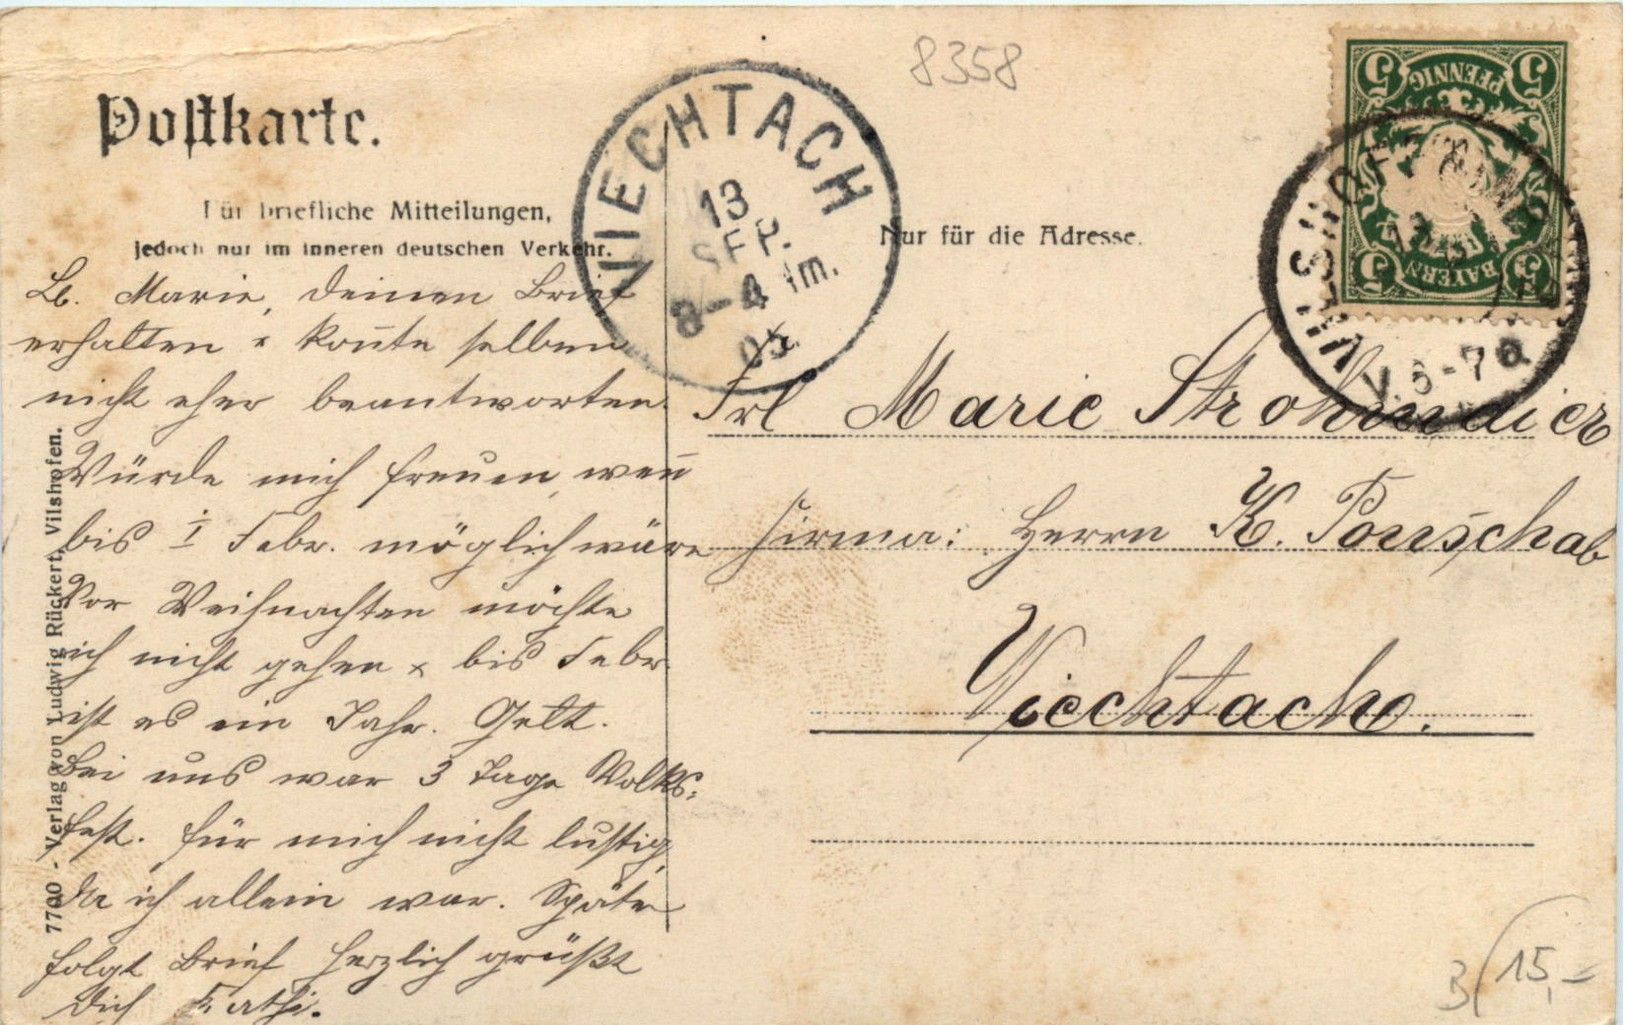 8358
Postkarte.
Für briefliche Mitteilungen,
jedoch nur im inneren deutschen Verkehr.
Nur für die Adresse.
VIECHTACH
13
SEP.
3-4 Nm.
05
5 PFENNIG 5
BAYERN
5 5
VILSHOFEN
V.6-7
Lb. Marie, deinen Brief
erhalten & kon̄te selben
nicht eher beantworten.
Würde mich freuen, wen̄
bis 1 Febr. möglich wäre
Vor Weihnachten möchte
ich nicht gehen & bis Febr.
ist es ein Jahr. Gelt.
Bei uns war 3 Tage Volks-
fest. für mich nicht lustig,
da ich allein war. Später
folgt Brief Herzlich grüßt
Dich Kathi.
Frl Marie Strohmaier
Firma: Herrn K. Ponschab
Viechtach.
7700 - Verlag von Ludwig Rückert, Vilshofen.
3
15,-